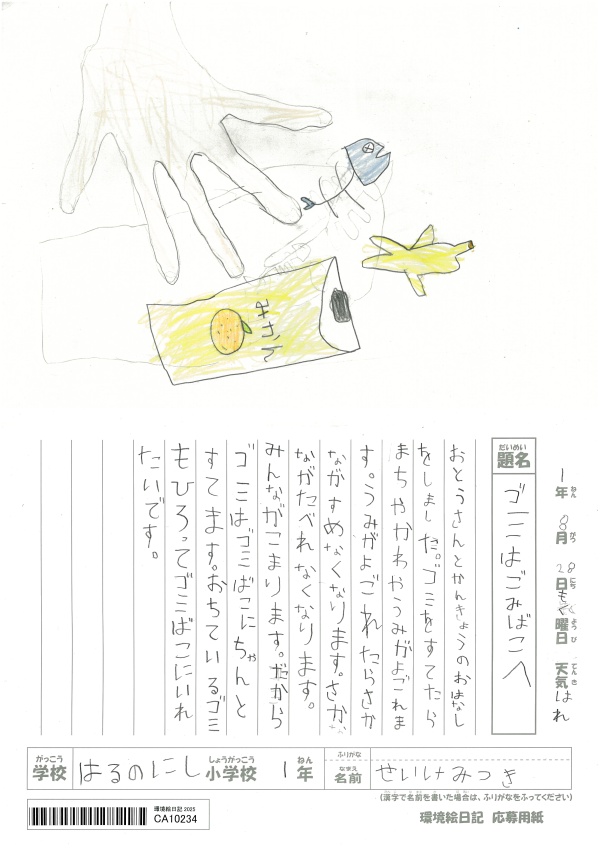 みかん
1年 8月 28日 もく曜日 天気 はれ
ねん がつ にち ようび てんき
だいめい
題名 ゴミはごみばこへ
おとうさんとかんきょうのおはなし
をしました。ゴミをすてたら
まちやかわやうみがよごれま
す。うみがよごれたらさか
ながすめなくなります。さかな
ながたべれなくなります。
みんながこまります。だから
ゴミはゴミばこにちゃんと
すてます。おちているゴミ
もひろってゴミばこにいれ
たいです。
がっこう しょうがっこう ねん ふりがな
学校 はるのにし 小学校 1年 なまえ 名前 せいけみつき
(漢字で名前を書いた場合は、ふりがなをふってください)
環境絵日記 2025
CA10234
環境絵日記 応募用紙